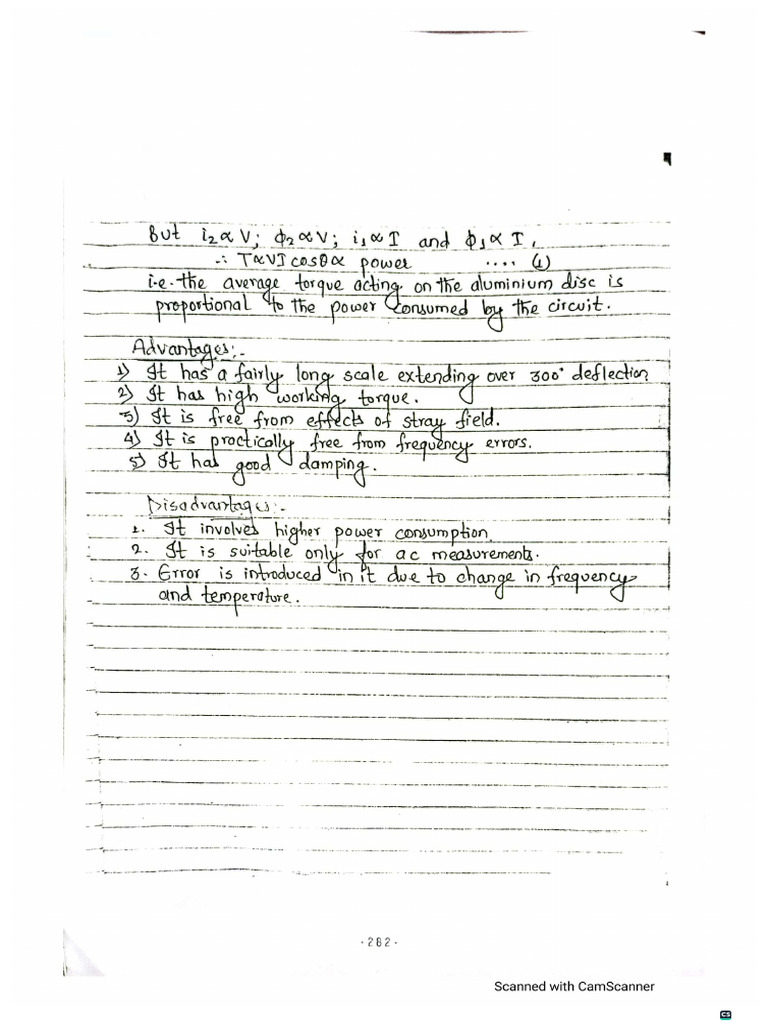 But i₂ ∝ V; ϕ₂ ∝ V; i₁ ∝ I and ϕ₁ ∝ I,
∴ T ∝ VI cosθ ∝ power .... (1)
i.e. the average torque acting on the aluminium disc is
proportional to the power consumed by the circuit.
Advantages:-
1) It has a fairly long scale extending over 300° deflection
2) It has high working torque.
3) It is free from effects of stray field.
4) It is practically free from frequency errors.
5) It has good damping.
Disadvantages:-
1. It involves higher power consumption.
2. It is suitable only for ac measurements.
3. Error is introduced in it due to change in frequency
and temperature.
-282-
Scanned with CamScanner
CS